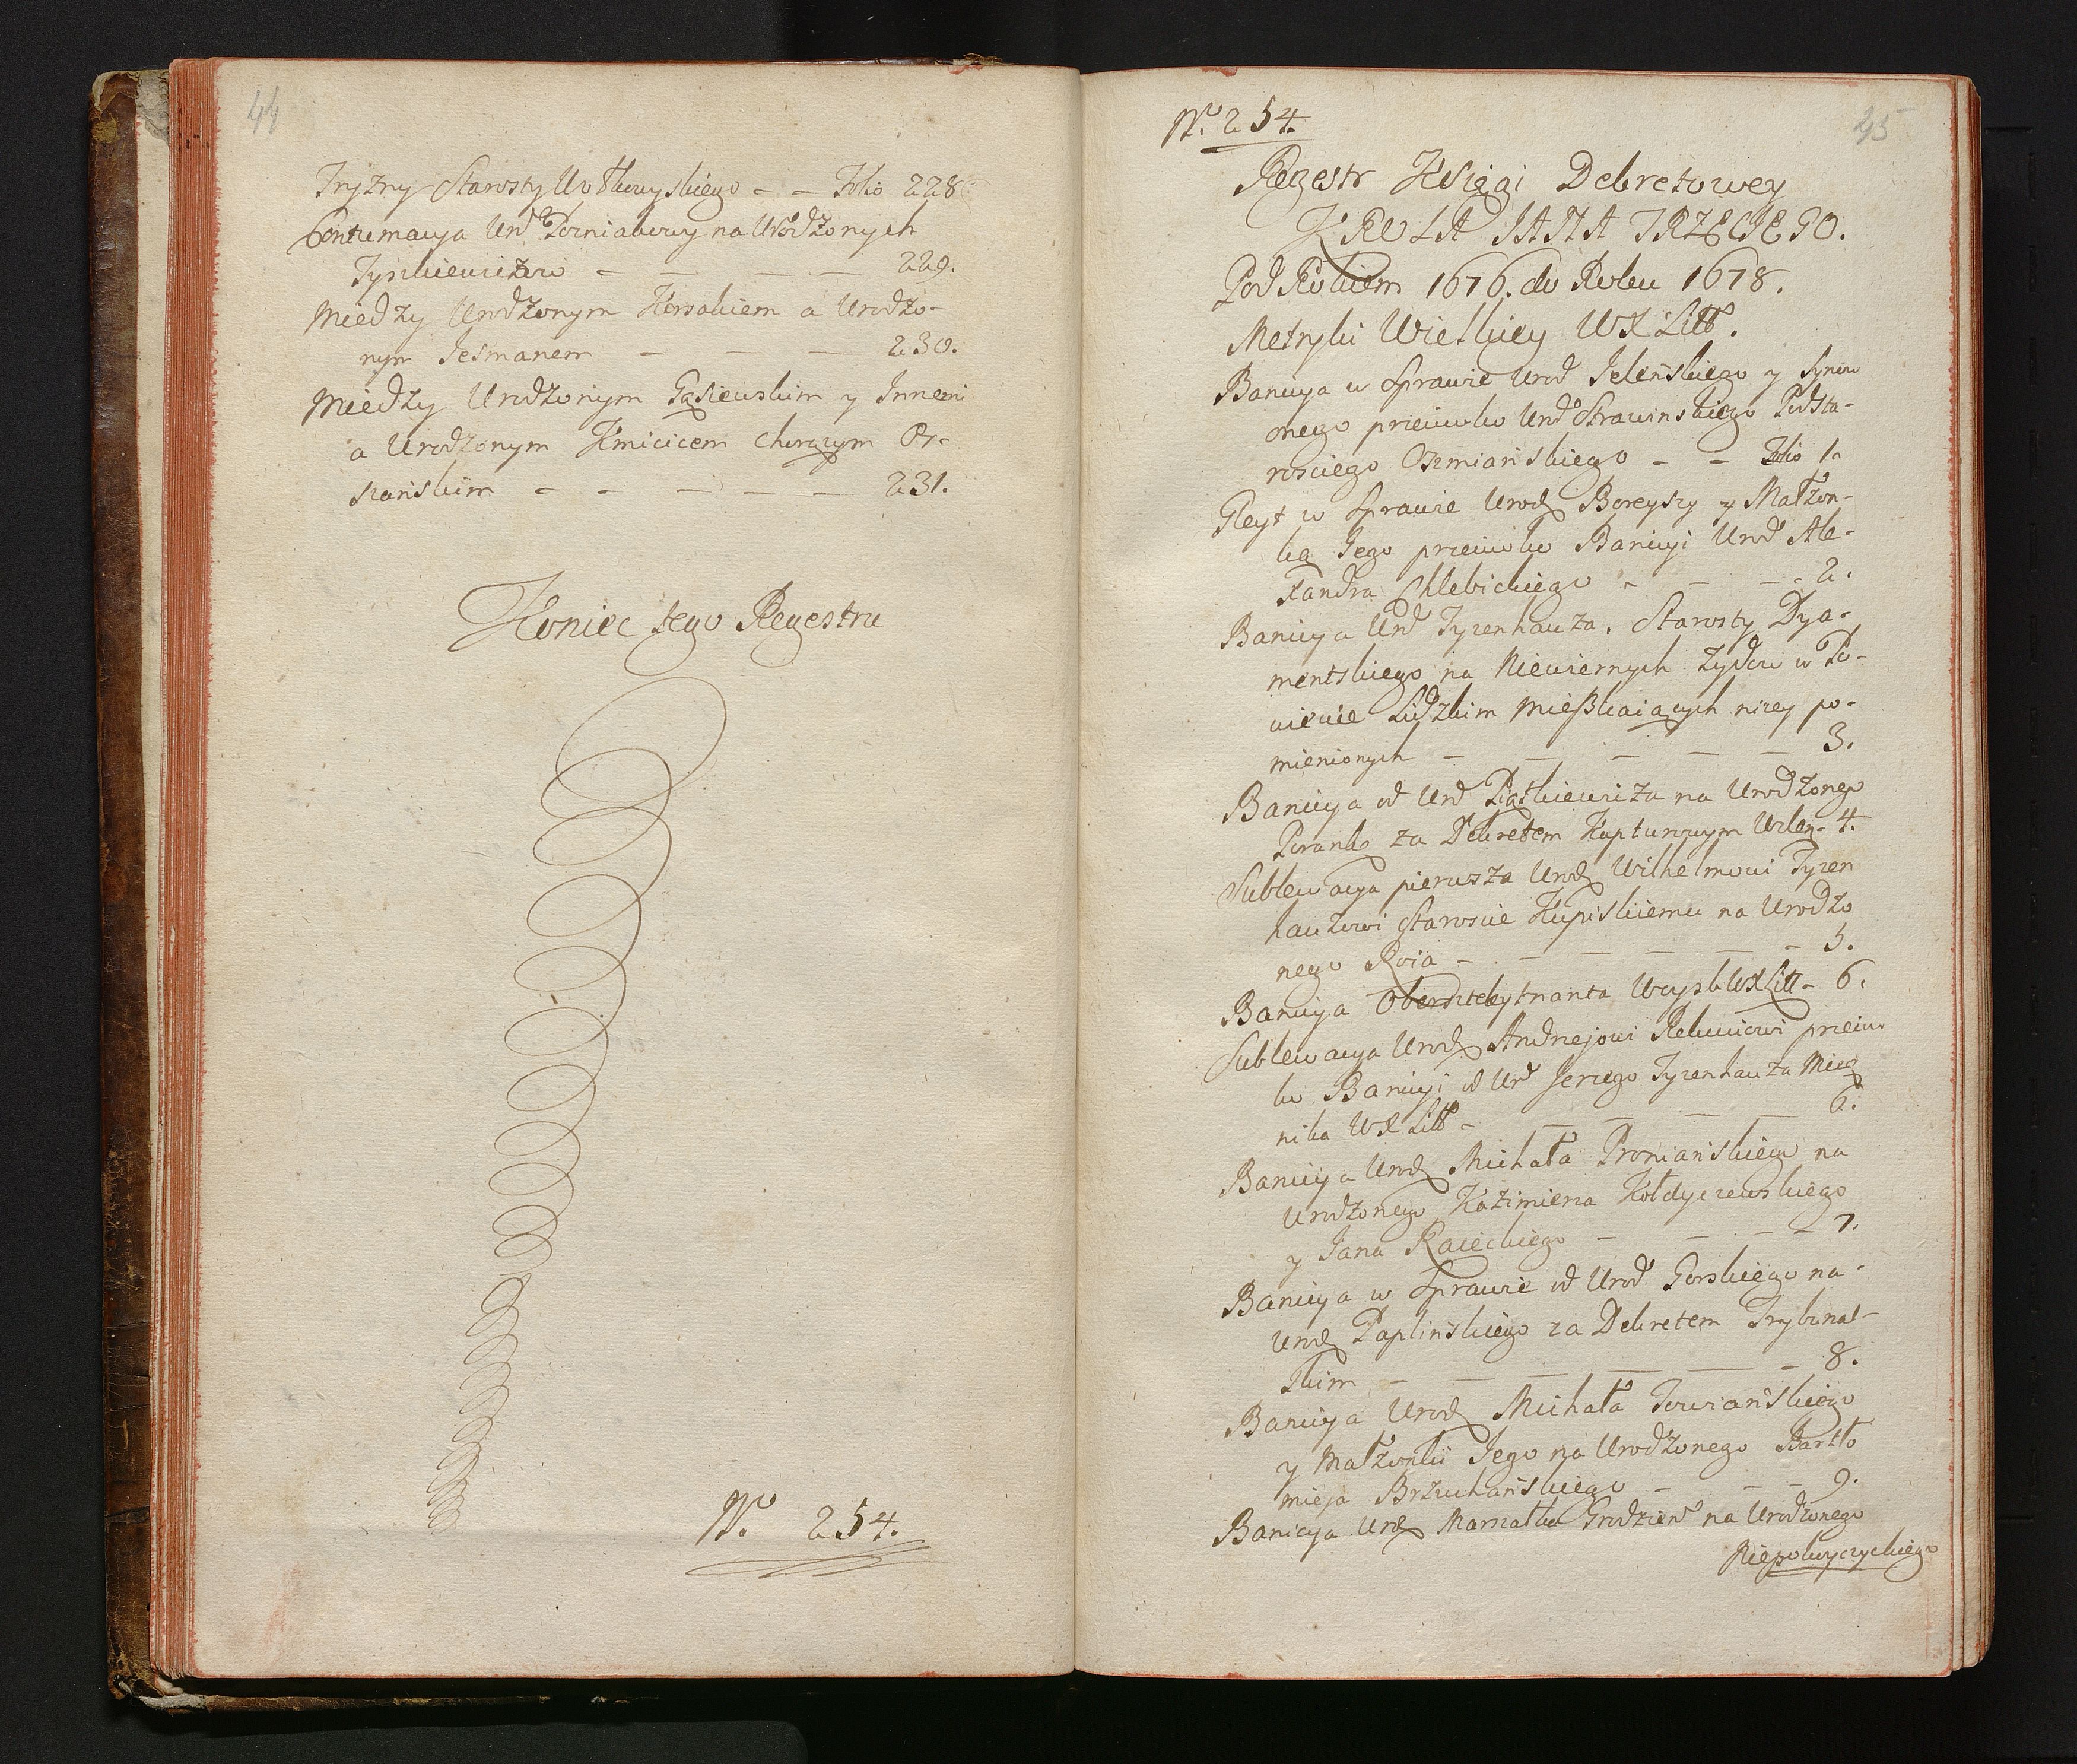 44
Tryzny Starosty Wołkowyskiego - - Folio 228
Contumacya Urod Porniakowy na Urodzonych
Tyszkiewiczow - - - - 229.
Między Urodzonym Korsakiem a Urodzo-
nym Jesmanem - - - 230.
Między Urodzonym Gąsiewskim y Innemi
a Urodzonym Kmicicem Chorązym Or-
szańskim - - - - - 231.
Koniec tego Regestru
No. 254.
No. 254.
45
Regestr Księgi Dekretowey
KROLA JANA TRZECIEGO.
Pod Rokiem 1676. do Roku 1678.
Metryki Wielkiey WX Litt.
Banicya w Sprawie Urod Jeleńskiego y Synow
onego przeciwko Urod Strawinskiego Podsta-
rosciego Oszmiańskiego - - Folio 1.
Gleyt w Sprawie Urodz Boreyszy y Małżon-
ką Jego przeciwko Banicyi Urod Ale-
xandra Chlebickiego - - - 2.
Banicya Urod Tyzenhauza, Starosty Dya-
mentskiego na Niewiernych Zydow w Po-
wiecie Lidzkim Mieszkaiących nizey po-
mienionych - - - - - 3.
Banicya od Urod Piątkiewicza na Urodzonego
za Dekretem Kapturowym Wilen - 4.
Sublewacya pierwsza Urodz Wilhelmowi Tyzen
hauzowi Staroscie Kupiskiemu na Urodzo
nego Roia - - - - - - 5.
Banicya Obersztleytnanta Woysk WX Litt - 6.
Sublewacya Urodz Andrzejowi Rekuciowi przeciw
ko Banicyi od Urod Jerzego Tyzenhauza Miecz
nika WX Litt - - - - 6.
Banicya Urodz Michała Proniańskiego na
Urodzonego Kazimierza Kołdyczewskiego
y Jana Raieckiego - - - - 7.
Banicya w Sprawie od Urod Gorskiego na
Urodz Paplińskiego za Dekretem Trybunal-
skim - - - - - - 8.
Banicya Urodz Michała Towiańskiego
y Małżonki Jego na Urodzonego Bartło
mieja Brzuchańskiego - - - 9.
Banicya Urodz Marszałka Grodzień na Urodzonego
Niepokoyczyckiego